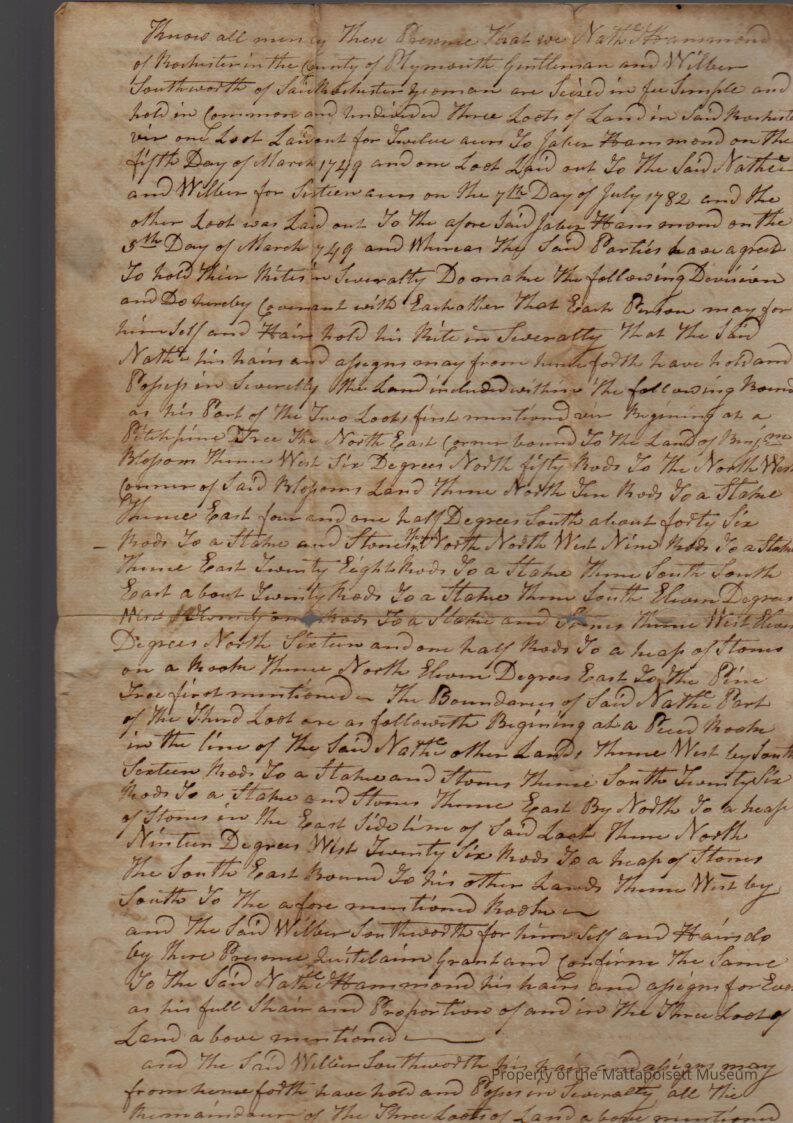 Know all men by These Presence That we Nathll Hammond
of Rochester in the County of Plymouth Gentleman and Wilber
Southworth of Said Rochester yeoman are Seized in fee Simple and
hold in Common and undivided Three Loots of Land in Said Rochester
viz one Loot Laid out for Twelve acers To Jaber Hammond on the
fifth Day of March 1749 and one Loot Laid out To The Said Nathll
and Wilber for Sixteen acers on the 7th Day of July 1782 and the
other Loot was Laid out To the afore Said Jaber Hammond on the
5th Day of March 1749 and Whereas They Said Parties have agreed
To hold Their Rites in Severalty Do make The following Devision
and Do hereby Covenant with Eachather That Each Person may for
him Self and Hairs hold his Rite in Severalty That The Said
Nathll his hairs and assigns may from hence forth have hold and
Possess in Severelty the Land included within the following Bounds
as his Part of The Two Loots first mentioned Begining at a
Pitchpine Tree The North East Corner bound To the Land of
Blossom Thence West Six Degrees North fifty Rods To The North West
Cornner of Said Blossoms Land Thence North Ten Rods To a Stake
Thence East four and one half Degrees South about forty Six
Rods To a Stake and Stones Thence North North West Nine Rods To a Stake
Thence East Twenty Eight Rods To a Stake Thence South South
East about Twenty Rods To a Stake Thence South Eleven Degrees
West Twenty one Rods To a Stake and Stones Thence West Eleven
Degrees North Sixteen and one half Rods To a heap of Stones
on a Rock Thence North Eleven Degrees East To the Pine
Tree first mentioned The Boundaries of Said Nathll Part
of the Third Loot are as followeth Begining at a Rock
in the line of The Said Nathll other Lands Thence West by South
Sixteen Rods To a Stake and Stones Thence South Twenty Six
Rods To a Stake and Stones Thence East By North To a heap
of Stones in the East Side line of Said Loot Thence North
Ninteen Degrees West Twenty Six Rods To a heap of Stones
The South East Bound To his other Lands Thence West by
South To The afore mentioned Rock
and The Said Wilber Southworth for him Self and Hairs do
by These Presence Quitclaim Grant and Confirme The Same
To The Said Nathll Hammond his hairs and assigns for Ever
as his full Shair and Proportion of and in The Three Loots of
Land above mentioned
and The Said Wilber Southworth his hairs and assigns may
Property of the Mattapoisett Museum
from hence forth have hold and Possess in Severalty all the
Remaindour of The Three Loots of Land above mentioned